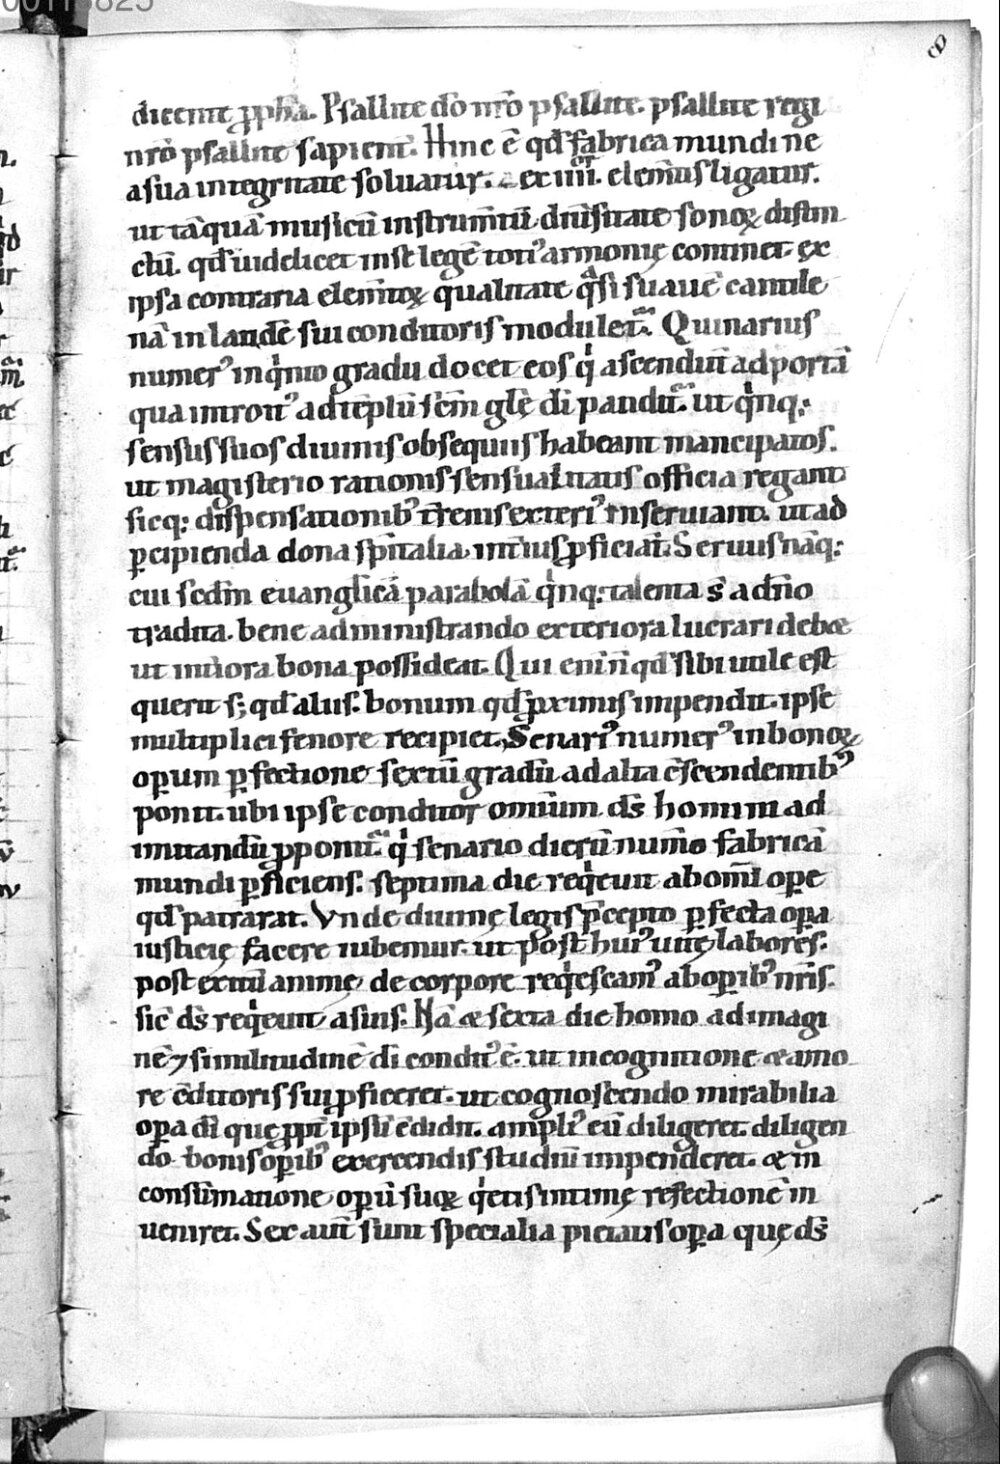 dicente ꝓph̄a. Psallite dō nr̄o psallite. psallite regi
nr̄o psallite sapient̄. Hinc ē qd̄ fabrica mundi ne
a sua integritate soluatur. ex iiii. elem̄tis ligatur.
ut tāquā musicū instrum̄tū diūsitate sonoꝝ distin
ctū. qd̄ uidelicet inst̄ legē toti᷒ armonię continet. ex
ipsa contraria elem̄toꝝ qualitate qͣsi suauē cantile
nā in laudē sui conditoris modulet᷑. Quinarius
numer᷒ in qͥnto gradu docet eos qͥ ascendūt ad portā
qua introit᷒ ad tēplū sc̄m gl̄ę dī pandit᷑. ut qͥnq;
sensus suos diuinis obsequiis habeant mancipatos.
ut magisterio rationis sensualitatis officia regant
sicq; dispensationib᷒ tr̄enis exteri᷒ inseruiant. ut ad
ꝑcipienda dona spīt̄alia. int̄ius ꝓficiāt. Seruus nāq;
cui scd̄m euanglicā parabolā qͥnq; talenta s̄ a dn̄o
tradita. bene administrando exteriora lucrari debet
ut int̄iora bona possideat. Qui enī n̄ qd̄ sibi utile est
querit s; qd̄ aliis. bonum qd̄ ꝓximis impendit. ipse
multiplici fenore recipiet. Senari᷒ numer᷒ in bonoꝝ
oꝑum ꝑfectione sextū gradū ad alta c̄scendentib᷒
ponit. ubi ipse conditor omnium ds̄ homini ad
imitandū ꝓponit᷑. qͥ senario dierū num̄o fabricā
mundi ꝑficiens. septima die reqͥeuit ab om̄i oꝑe
qd̄ patrarat. Vnde diuinę legis p̄cepto ꝑfecta oꝑa
iusticię facere iubemur. ut post hui᷒ uitę labores.
post exitū animę de corpore reqͥescam᷒ ab oꝑib᷒ nr̄is.
sic̄ ds̄ reqͥeuit a suis. Nā & sexta die homo ad imagi
nē ⁊ similitudinē dī condit᷒ ē. ut in cognitione & amo
re c̄ditoris sui ꝓficeret. ut cognoscendo mirabilia
oꝑa dī quę ꝓpt̄ ipsū c̄didit. ampli᷒ eū diligeret. diligen
do bonis oꝑib᷒ exercendis studiū impenderet. & in
const̄matione oꝑū suoꝝ qͥetis intimę refectionē in
ueniret. Sex aut̄ sunt specialia pietatis oꝑa quę ds̄